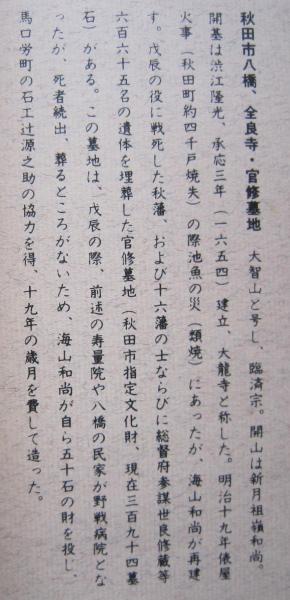 秋田市八橋、全良寺・官修墓地　大智山と号し、臨済宗。開山は新月祖嶺和尚。
開基は渋江隆光。承応三年（一六五四）建立、大龍寺と称した。明治十九年俵屋
火事（秋田町約四千戸焼失）の際池魚の災（類焼）にあったが、海山和尚が再建
す。戊辰の役に戦死した秋藩、および十六藩の士ならびに総督府参謀世良修蔵等
六百六十五名の遺体を埋葬した官修墓地（秋田市指定文化財、現在三百九十四墓
石）がある。この墓地は、戊辰の際、前述の寿量院や八橋の民家が野戦病院とな
ったが、死者続出、葬るところがないため、海山和尚が自ら五十石の財を投じ、
馬口労町の石工辻源之助の協力を得、十九年の歳月を費して造った。